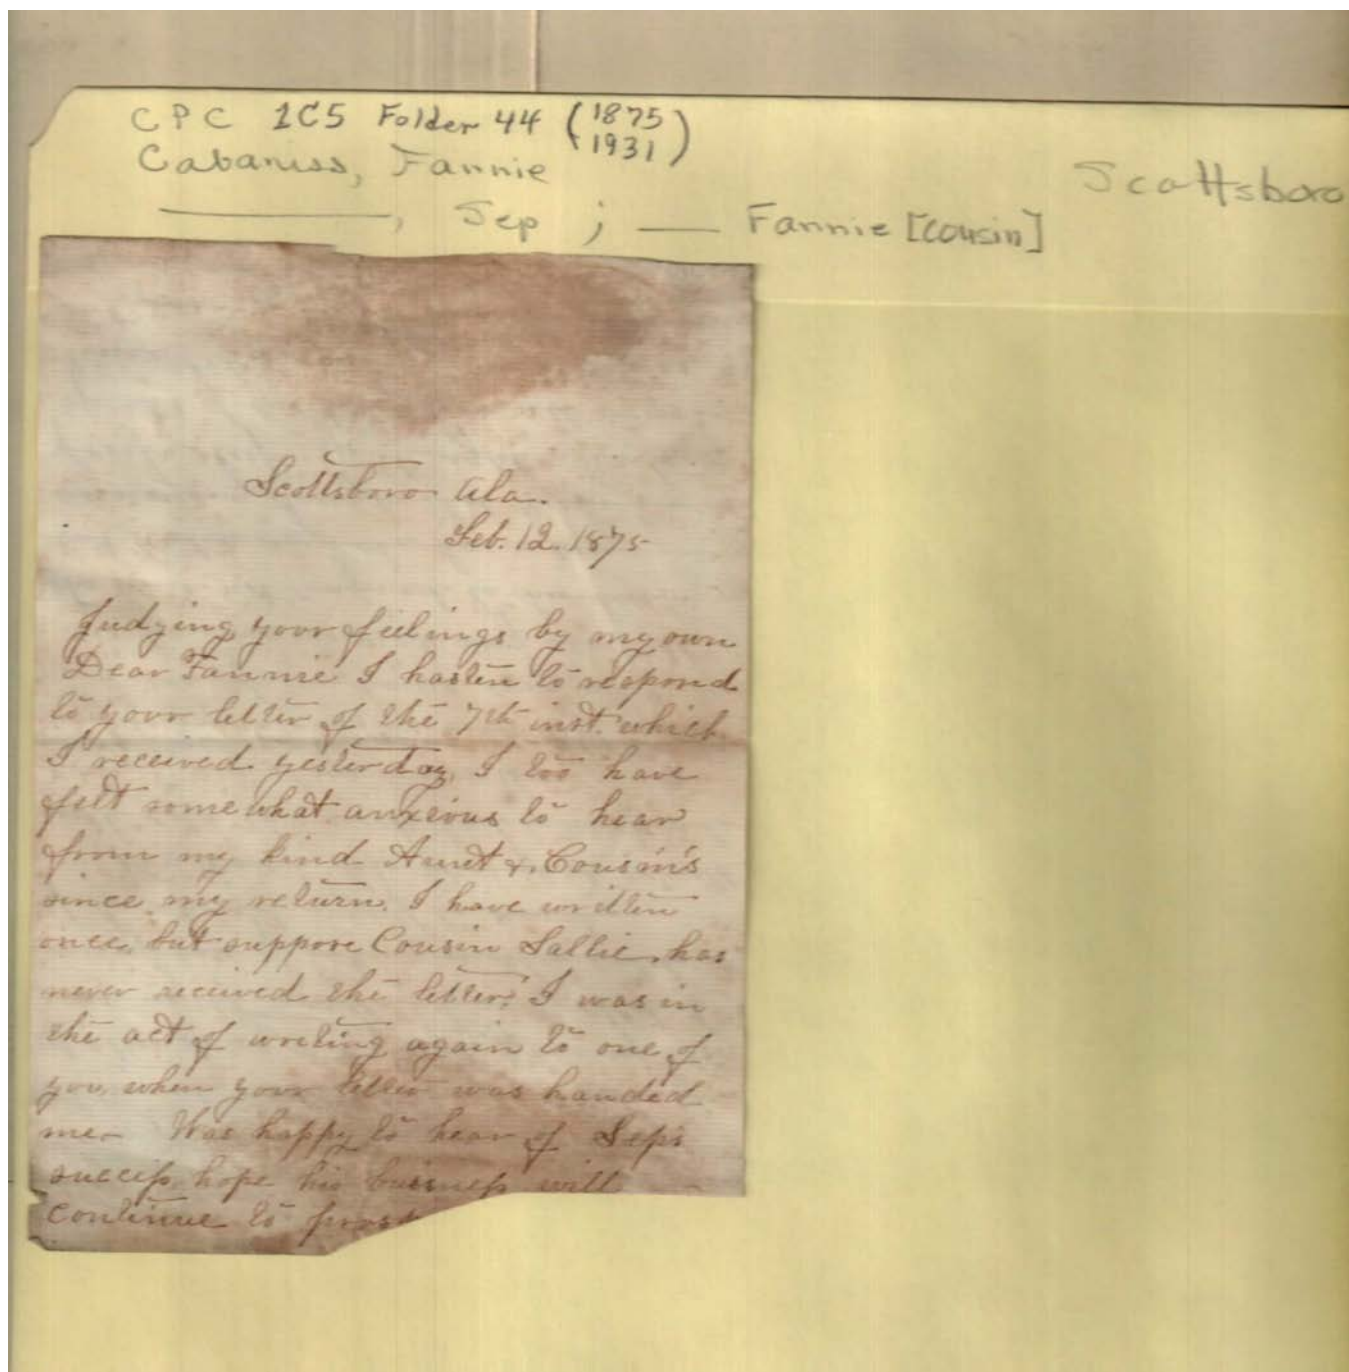 CPC 1C5 Folder 44 (1875
1931)
Cabaniss, Fannie
Scottsboro
———, Sep ; — Fannie [cousin]
Scottsboro Ala.
Feb. 12. 1875
Judging your feelings by my own
Dear Fannie I hasten to respond
to your letter of the 7th inst. which
I received yesterday, I too have
felt somewhat anxious to hear
from my kind Aunt & Cousin's
since my return. I have written
once, but suppose Cousin Sallie, has
never received the letter. I was in
the act of writing again to one of
you, when your letter was handed
me— Was happy to hear of Sep's
success, hope his business will
continue to